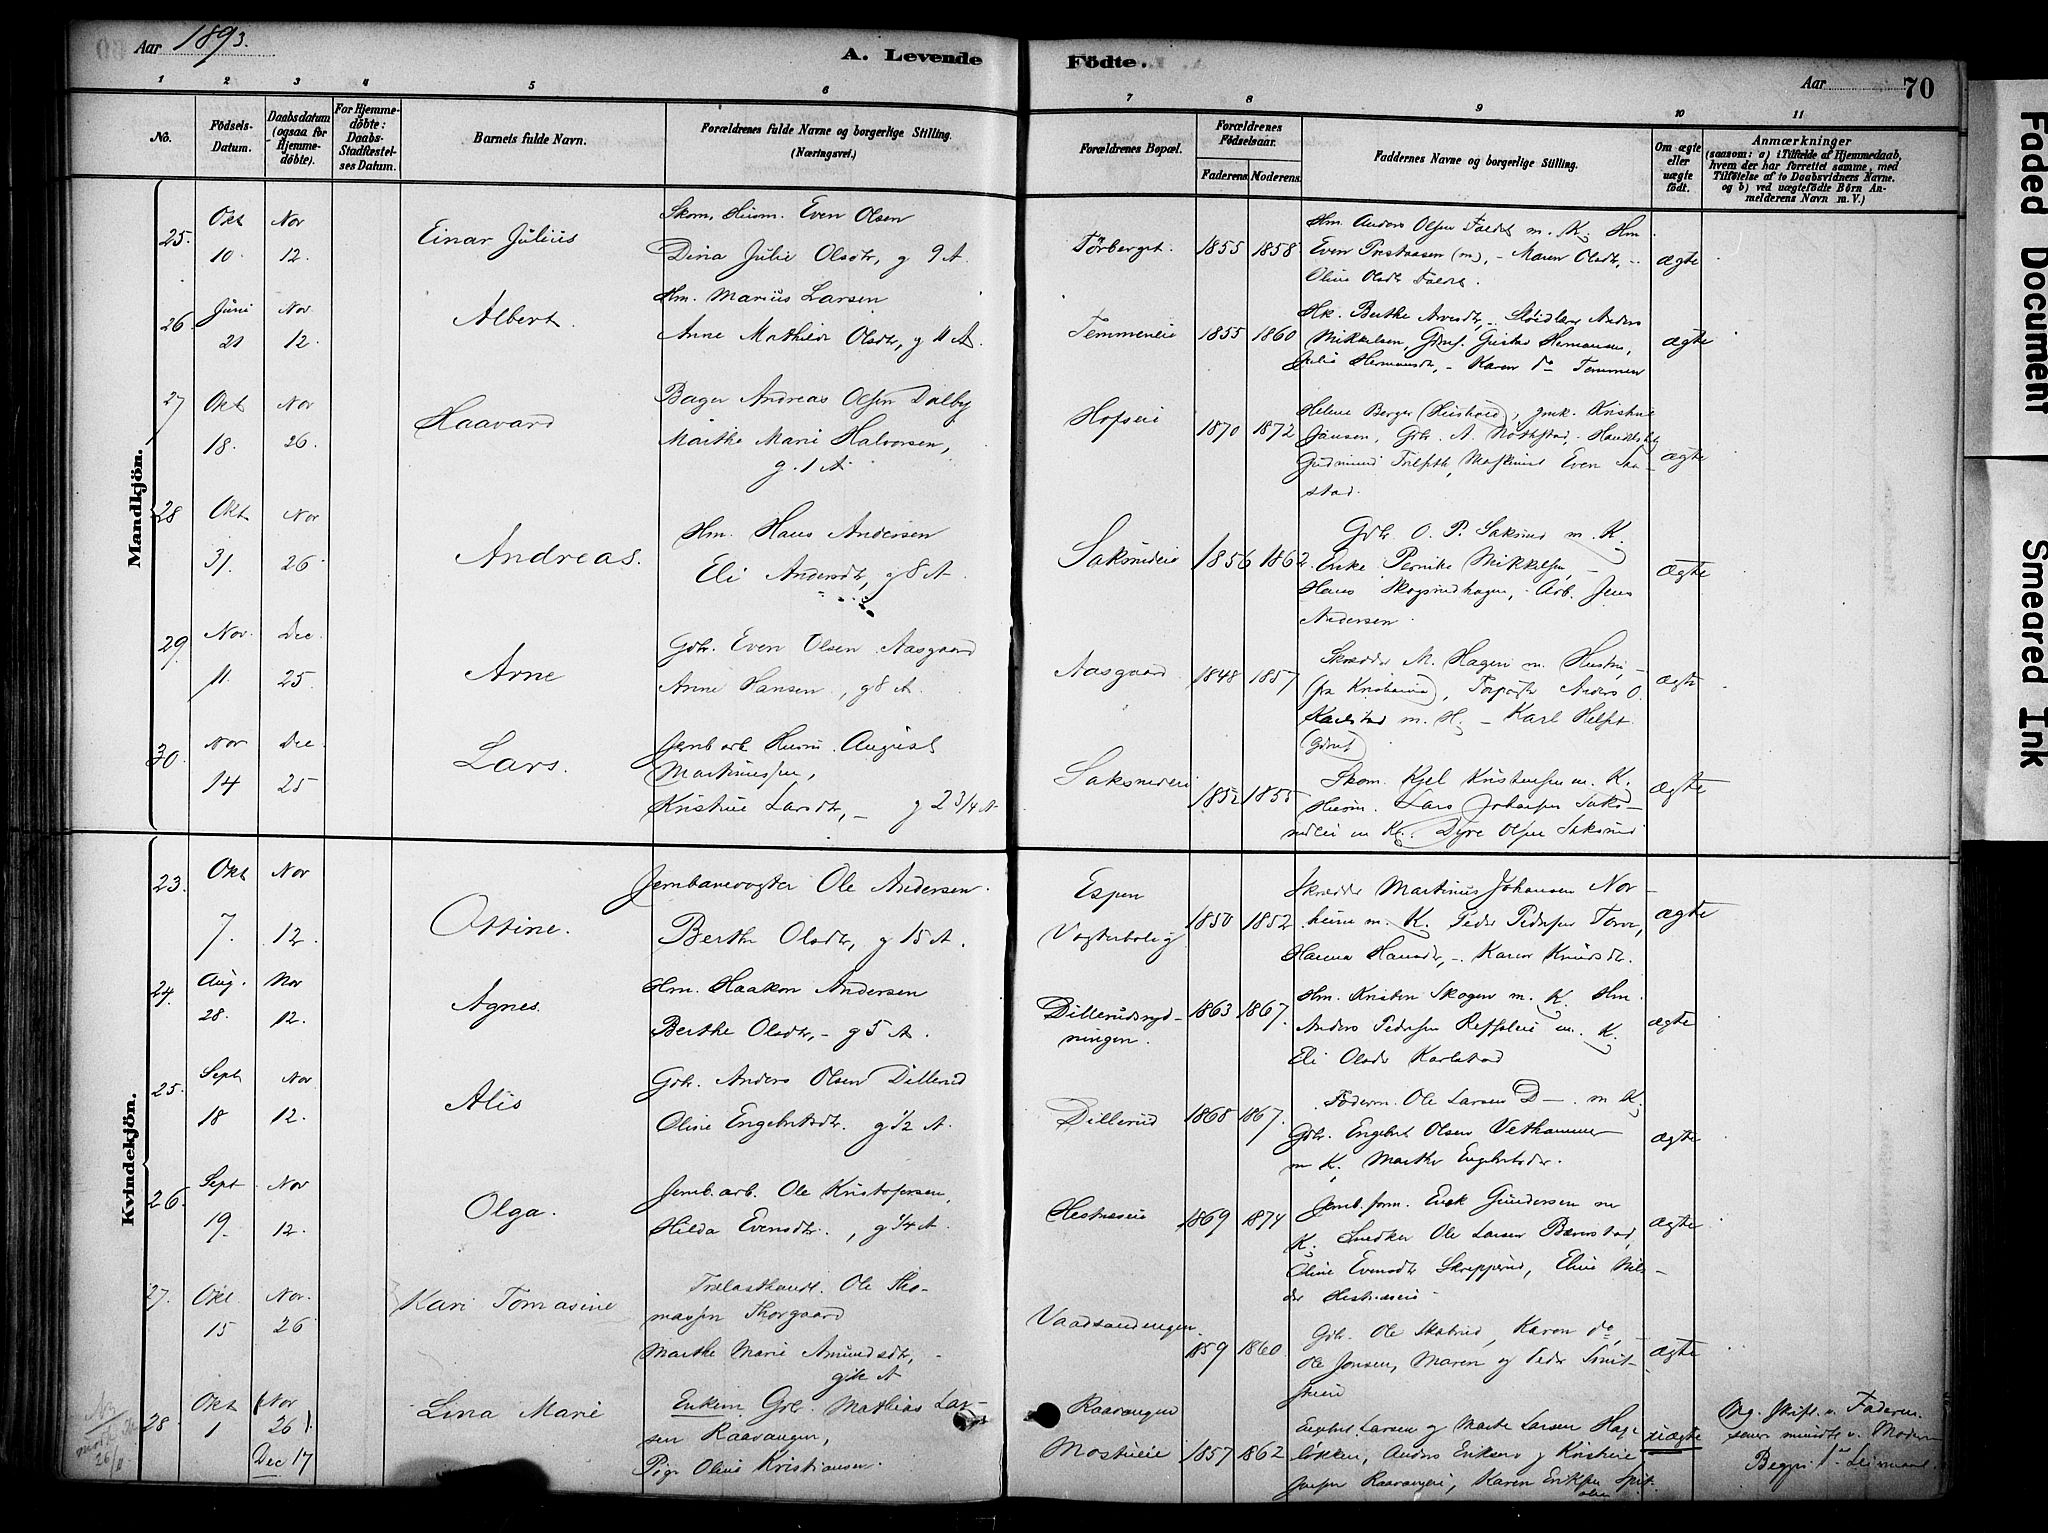 Aar 1893.
A. Levende Födte.
Aar 70
1 2 3 4 5 6 7 8 9 10 11
No.
Födsels-Datum.
Daabsdatum (ogsaa for Hjemme-döbte).
For Hjemme-döbte: Daabs-Stadfæstel-ses Datum.
Barnets fulde Navn.
Forældrenes fulde Navne og borgerlige Stilling. (Næringsvei.)
Forældrenes Bopæl.
Forældrenes Födselsaar.
Faderens. Moderens.
Faddernes Navne og borgerlige Stilling.
Om ægte eller uægte födt.
Anmærkninger
(saasom: a) i Tilfælde af Hjemmedaab,
hvem der har forrettet samme, med
Tilföielse af to Daabsvidners Navne.
og b) ved uægtefödte Börn An-
melderens Navn m. V.)
Mandkjön.
25. Okt 10. Nov 12. Einar Julius
Skom. Husm. Even Olsen
Dina Julie Olsdtr, g 9 A.
Törberget. 1855 1858.
Hm. Anders Olsen Faldet m. K. Hm.
Even (m), - Maren Olsdtr, -
Oline Olsdtr Faldet.
ægte
26. Juni 21 Nov. 12. Albert.
Hm. Marius Larsen
Anne Mathilde Olsdtr, g 11 A.
Temmeneie 1855 1860
Hk. Berthe Arvesdtr, - Anders
Mikkelsen, Gustav Hermansen,
Julie Hermansdtr, - Karen do Temmen
ægte
27 Okt 18. Nov 26. Haavard
Bager Andreas Olsen Dalby
Marthe Marie Halvorsen,
g. 1 A.
Hofseie 1870 1872
Helene Berger, Kristine
Jansen, Gbr. A. Nöttestad,
Gudmund, Even Saa-
stad.
ægte
28 Okt 31. Nov 26. Andreas.
Hm. Hans Andersen
Eli Andersdtr, g 8 A.
Saksrudeie 1856 1862.
Gdbr O. P. Saksrud m. K.
Enke Pernike Mikkelsen, -
Hans Skogsrudhagen, Arb. Jens
Andersen.
ægte
29. Nov. 11. Dec. 25. Arne
Gdbr. Even Olsen Aasgaard
Anne Hansen, g 8 A.
Aasgaard 1848 1857
Skrædder M. Hagen m. Hustru
(fra Kristiania), Anders O.
Karlstad m. H. - Karl
ægte
30. Nov 14 Dec 25 Lars.
Jernb. arb Husm. August
Martinussen,
Kristine Larsdtr, - g 2 3/4 A
Saksrudeie 1852 1855
Skom. Kjel Kristensen m. K.
Husm. Lars Johansen Saks-
rudeie m K. Dyre Olsen Saksrud
ægte
Kvindekjön.
23. Okt 7. Nov 12. Ottine.
Jernbanevogter Ole Andersen.
Berthe Olsdtr, g 15 A.
Espen
Vogterbolig 1850 1852
Skrædder Martinus Johansen Nor-
heim m. K. Peder Pedersen,
Hanna Hansdtr, - Karen Knudsdtr.
ægte
24. Aug. 28. Nov 12. Agnes.
Hm. Haakon Andersen
Berthe Olsdtr, - g 5 A.
Dillerudsryd-
ningen. 1863 1867.
Hm. Kristen Skogen m. K. Hm.
Anders Pedersen m. K.
Eli Olsdtr Karlstad
ægte
25. Sept 18 Nov 12. Alis
Gdbr. Anders Olsen Dillerud
Oline Engebretsdtr. g 1/2 A.
Dillerud 1868 1867.
Föderm. Ole Larsen D-. m K.
Gdbr. Engebret Olsen Vethammer
m K. Marthe Engebretsdtr.
ægte
26. Sept 19. Nov 12. Olga.
Jernb. arb. Ole Kristofersen,
Hilda Evensdtr., g 1/4 A.
Hestnæseie 1869 1874
Jernb. form. Erik Gundersen m
K. Snedker Ole Larsen,
Oline Evensdtr Skrepperud, Eline Nils-
dtr Hestnæseie
ægte
27. Okt. 15 Nov. 26 Kari Tomasine
Trælasthandl. Ole Tho-
massen Thorgaard
Marthe Marie Amundsdtr, -
A
Vaadsandengen. 1859 1860.
Gdbr. Ole Skabrud, Karen do, -
Ole Jonsen, Maren og Peder
ægte
28 Okt 1 (Nov 26). Dec 17 Lina Marie
Enkem. Gdbr. Mathias Lar-
sen Raavangen,
Pige Oline Kristiansen.
Raavangen
Mostueeie 1857 1862
Engebret Larsen og Marte Larsen
lökken, Anders Eriksen og Kristine
Raavangeie, Karen Eriksen
uægte
Skift. v. Faderen
senere mundtl. v. Moderen